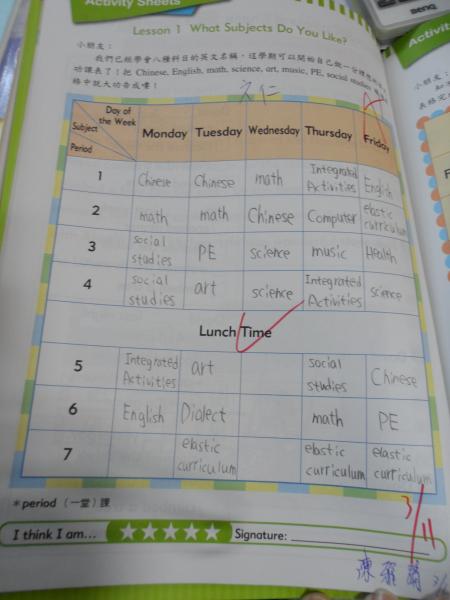 Activity Sheets
Lesson 1 What Subjects Do You Like?
小朋友：
我們已經學會八種科目的英文名稱，這學期可以開始自己做一
功課表了！把 Chinese, English, math, science, art, music, PE, social studies
格中就大功告成嘍！
Day of the Week Subject Period Monday Tuesday Wednesday Thursday Friday
1 Chinese Chinese math Integrated Activities English
2 math math Chinese Computer elastic curriculum
3 social studies PE science music Health
4 social studies art science Integrated Activities science
Lunch Time
5 Integrated Activities art social studies Chinese
6 English Dialect math PE
7 elastic curriculum elastic curriculum elastic curriculum
*period （一堂）課
3/11
I think I am... Signature:
BenQ